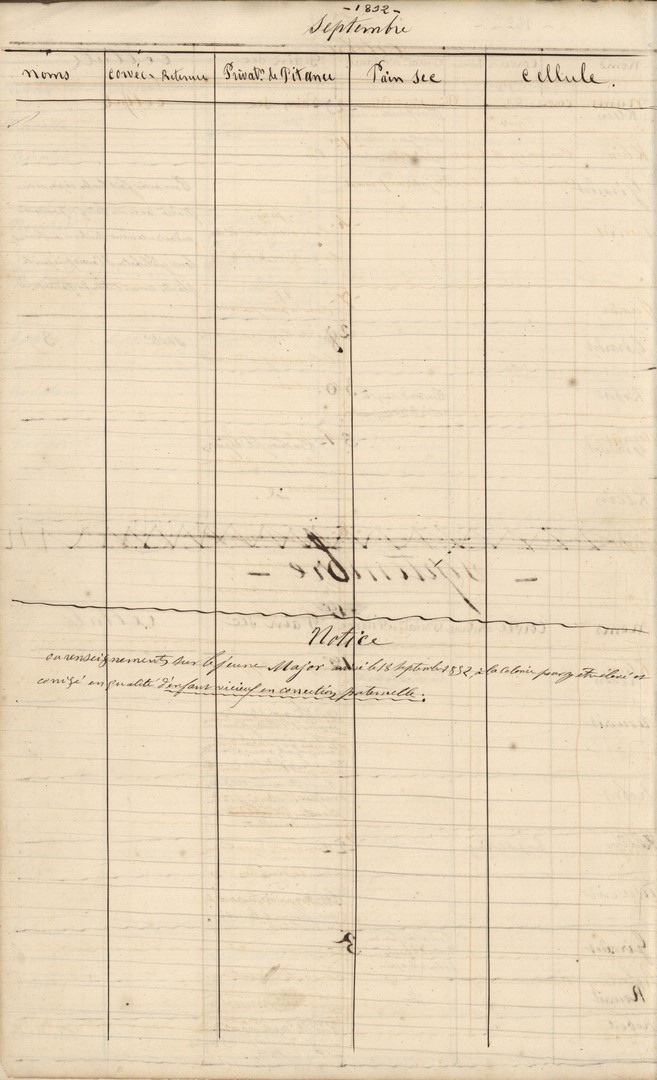 - 1892 -
Septembre
noms Corvée - Retenue Privat.n de Pitance Pain sec Cellule.
Notice
ou renseignements sur le jeune Major arrivé le 18 Septembre 1892, à la colonie pour y être élevé et
corrigé en qualité d'enfant vicieux en correction paternelle.